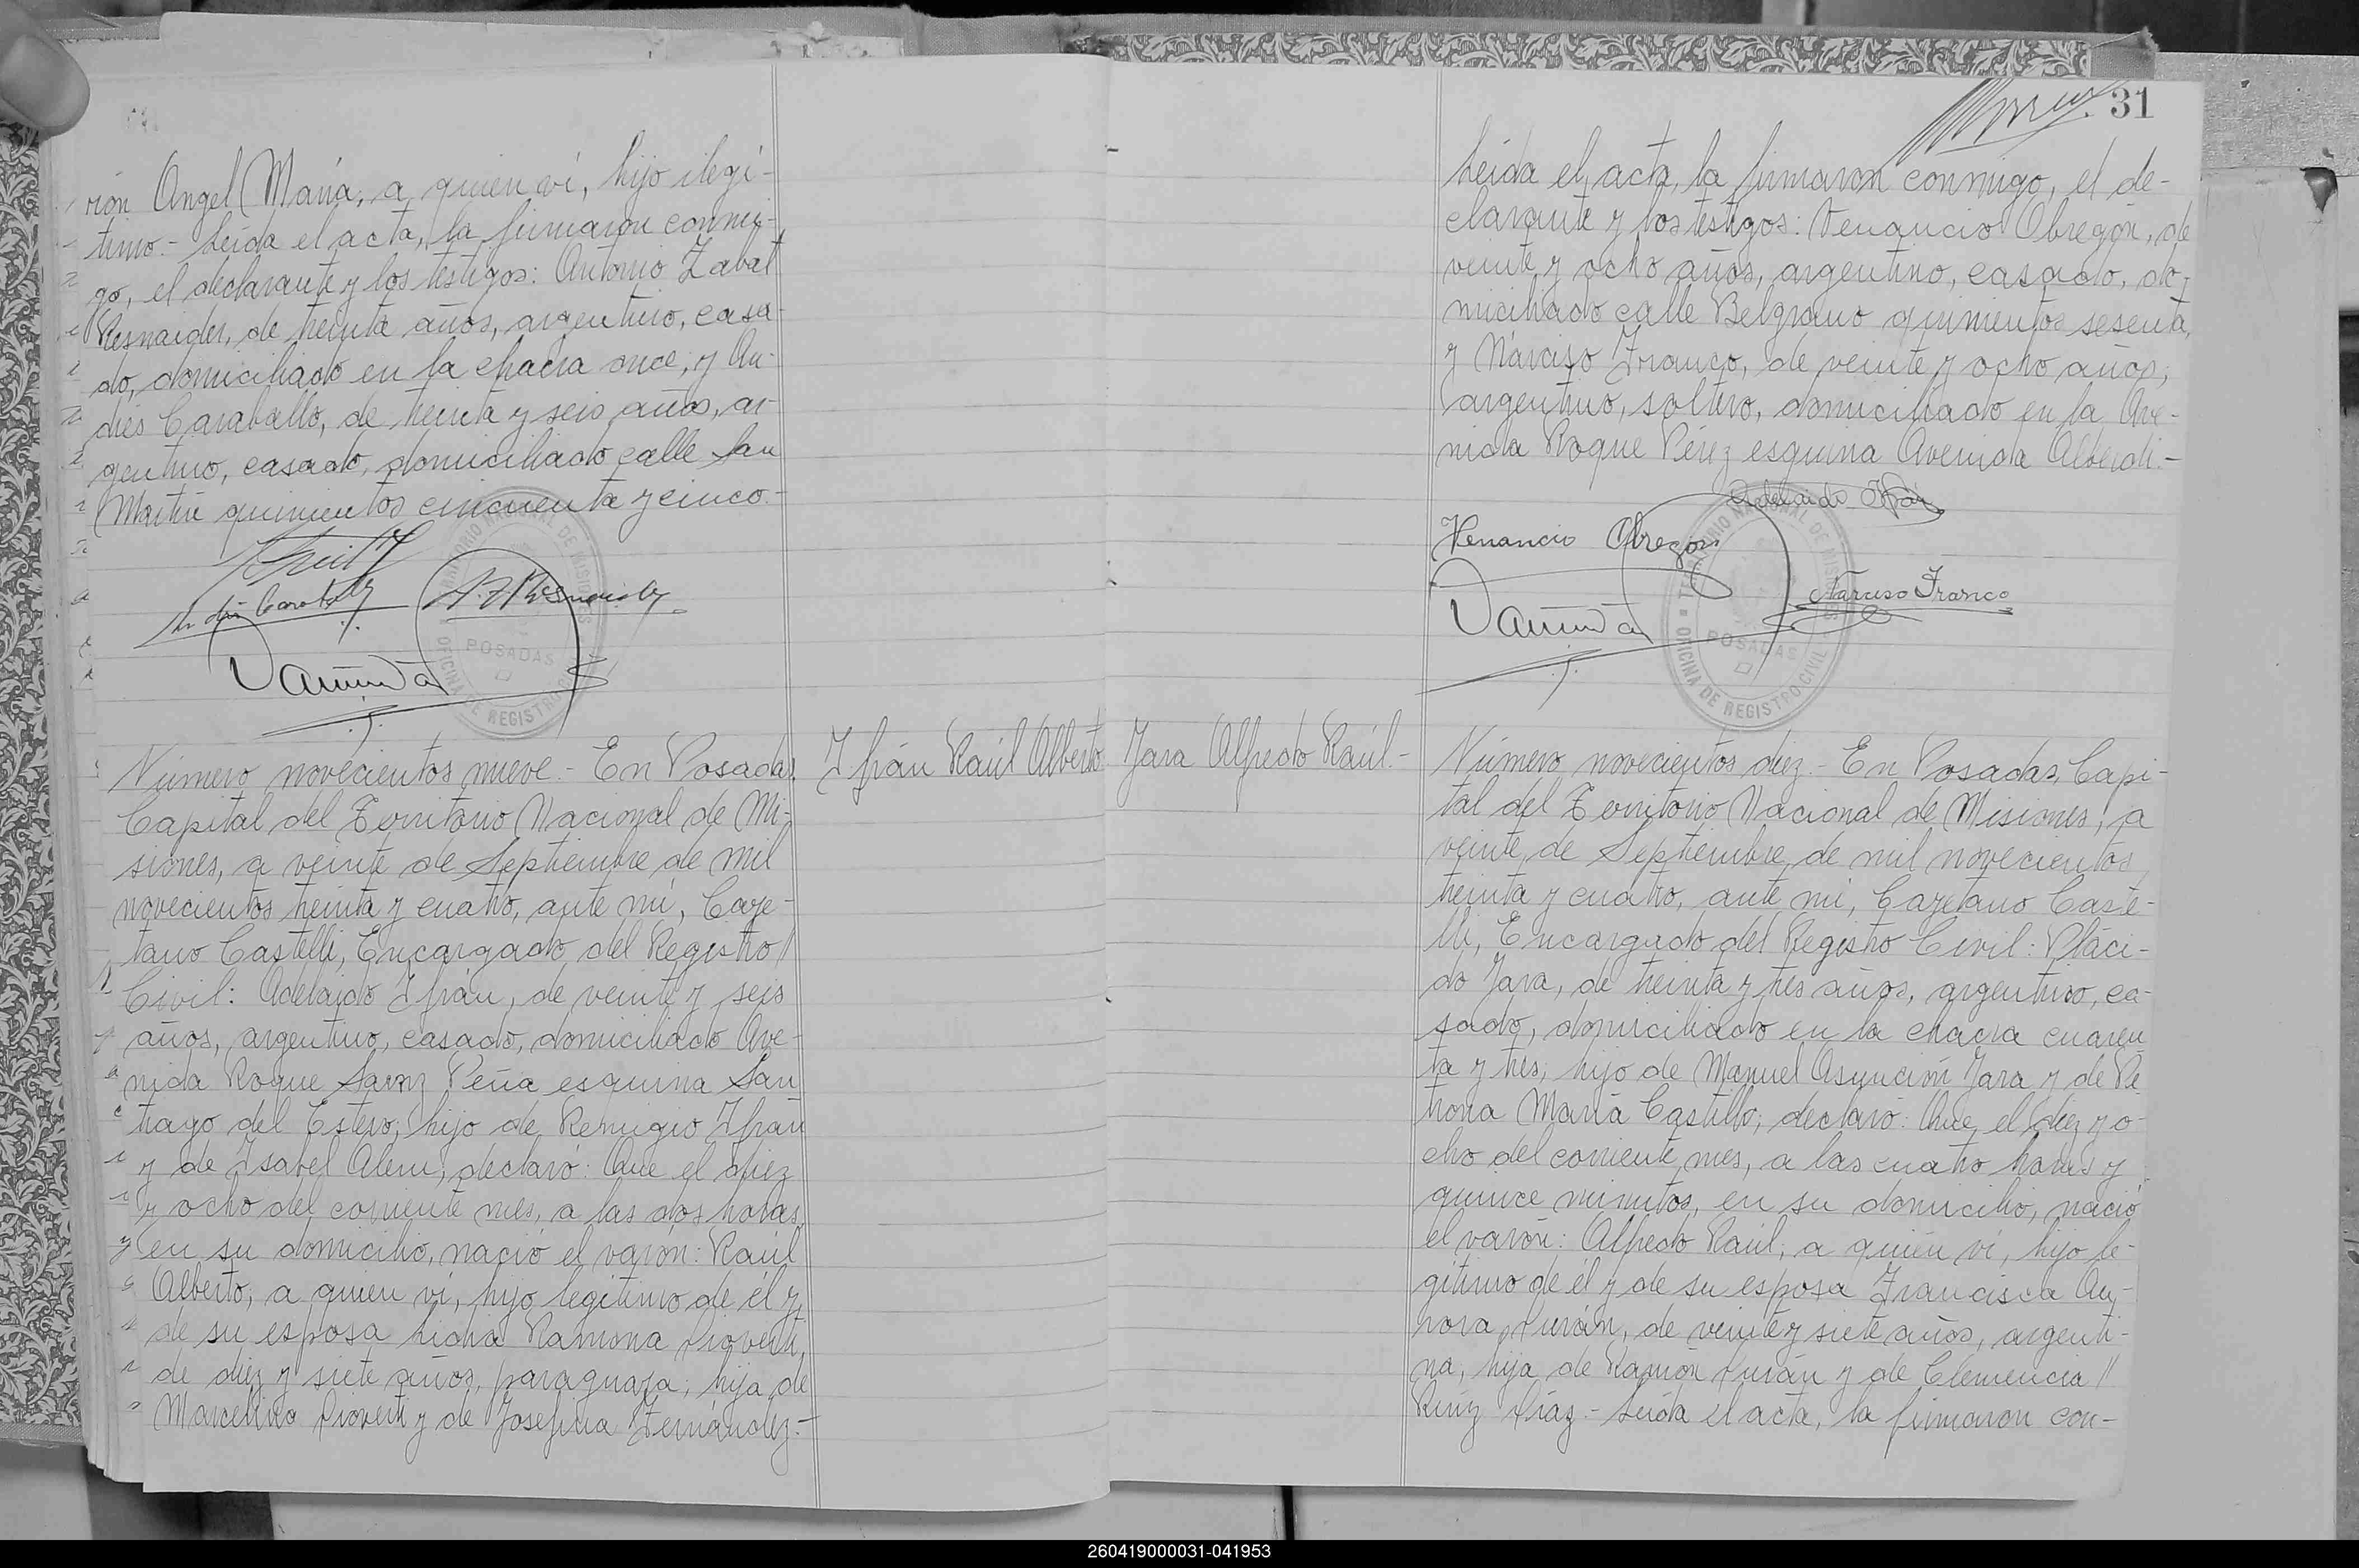 rón Angel María, a quien ví, hijo ilegí-
timo.- Leída el acta, la firmaron conmi-
go, el declarante y los testigos: Antonio Zabal
Resnaider, de treinta años, argentino, casa-
do, domiciliado en la chacra once, y An-
drés Caraballo, de treinta y seis años, ar-
gentino, casado, domiciliado calle San
Martín quinientos cincuenta y cinco.-
TERRITORIO NACIONAL DE MISIONES
POSADAS
OFICINA DE REGISTRO CIVIL
Número novecientos nueve.- En Posadas,
Capital del Territorio Nacional de Mi-
siones, a veinte de Septiembre de mil
novecientos treinta y cuatro, ante mí, Caye-
tano Castelli, Encargado del Registro
Civil: Adelaido Ifrán, de veinte y seis
años, argentino, casado, domiciliado Ave-
nida Roque Saenz Peña esquina San
tiago del Estero; hijo de Remigio Ifrán
y de Isabel Alem; declaró: Que el diez
y ocho del corriente mes, a las dos horas,
en su domicilio, nació el varón: Raúl
Alberto, a quien ví, hijo legítimo de él y
de su esposa Lidia Ramona Dioverti,
de diez y siete años, paraguaya, hija de
Marcelino Dioverti y de Josefina Fernández.-
Ifrán Raúl Alberto
Jara Alfredo Raúl.-
31
Leída el acta, la firmaron conmigo, el de-
clarante y los testigos: Venancio Obregón, de
veinte y ocho años, argentino, casado, do-
miciliado calle Belgrano quinientos sesenta,
y Narciso Franco, de veinte y ocho años,
argentino, soltero, domiciliado en la Ave-
nida Roque Pérez esquina Avenida Alberdi.-
Adelaido Ifrán
Venancio Obregón
Narciso Franco
TERRITORIO NACIONAL DE MISIONES
POSADAS
OFICINA DE REGISTRO CIVIL
Número novecientos diez.- En Posadas, Capi-
tal del Territorio Nacional de Misiones, a
veinte de Septiembre de mil novecientos
treinta y cuatro, ante mí, Cayetano Caste-
lli, Encargado del Registro Civil: Pláci-
do Jara, de treinta y tres años, argentino, ca-
sado, domiciliado en la chacra cuaren
ta y tres, hijo de Manuel Asunción Jara y de Pe
trona María Castillo; declaró: Que el diez y o-
cho del corriente mes, a las cuatro horas y
quince minutos, en su domicilio, nació
el varón: Alfredo Raúl, a quien ví, hijo le-
gítimo de él y de su esposa Francisca Au-
rora Durán, de veinte y siete años, argenti-
na, hija de Ramón Durán y de Clemencia
Ruíz Díaz.- Leída el acta, la firmaron con-
260419000031-041953